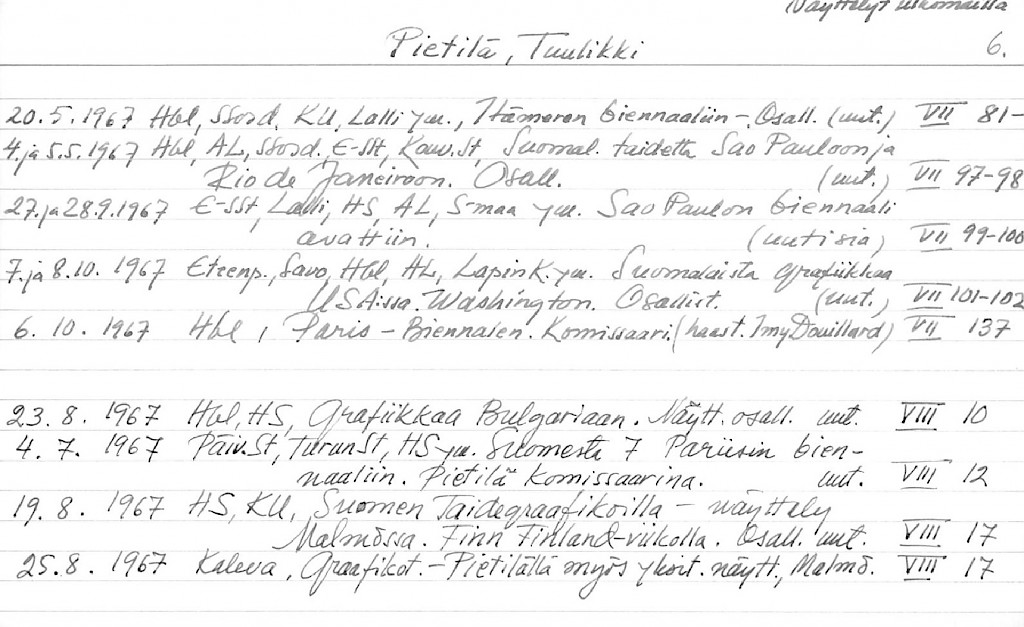 Näyttelyt ulkomailla
Pietilä, Tuulikki 6.
20.5.1967 Hbl, SSosd, KU, Lalli ym., Itämeren biennaaliin -. Osall. (uut.) VII 81-
4. ja 5.5.1967 Hbl, AL, SSosd. E-SSt, Kouv.St, Suomal. taidetta Sao Pauloon ja
Rio de Janeiroon. Osall. (uut.) VII 97-98
27. ja 28.9.1967 E-SSt, Lalli, HS, AL, S-maa ym. Sao Paulon biennaali
avattiin. (uutisia) VII 99-100
7. ja 8.10. 1967 Eteenp., Savo, Hbl, HL, Lapin K. ym. Suomalaista grafiikkaa
USA:ssa. Washington. Osallist. (uut.) VII 101-102
6. 10. 1967 Hbl, Paris - Biennalen. Komissaari. (haast. Imy Douillard) VII 137
23. 8. 1967 Hbl, HS, Grafiikkaa Bulgariaan. Näytt. osall. uut. VIII 10
4. 7. 1967 Päiv.St, TurunSt, HS ym. Suomesta 7 Pariisin bien-
naaliin. Pietilä komissaarina. uut. VIII 12
19. 8. 1967 HS, KU, Suomen Taidegraafikoilla - näyttely
Malmössa. Finn Finland-viikolla. Osall. uut. VIII 17
25.8. 1967 Kaleva, Graafikot. - Pietilällä myös yksit. näytt., Malmö. VIII 17